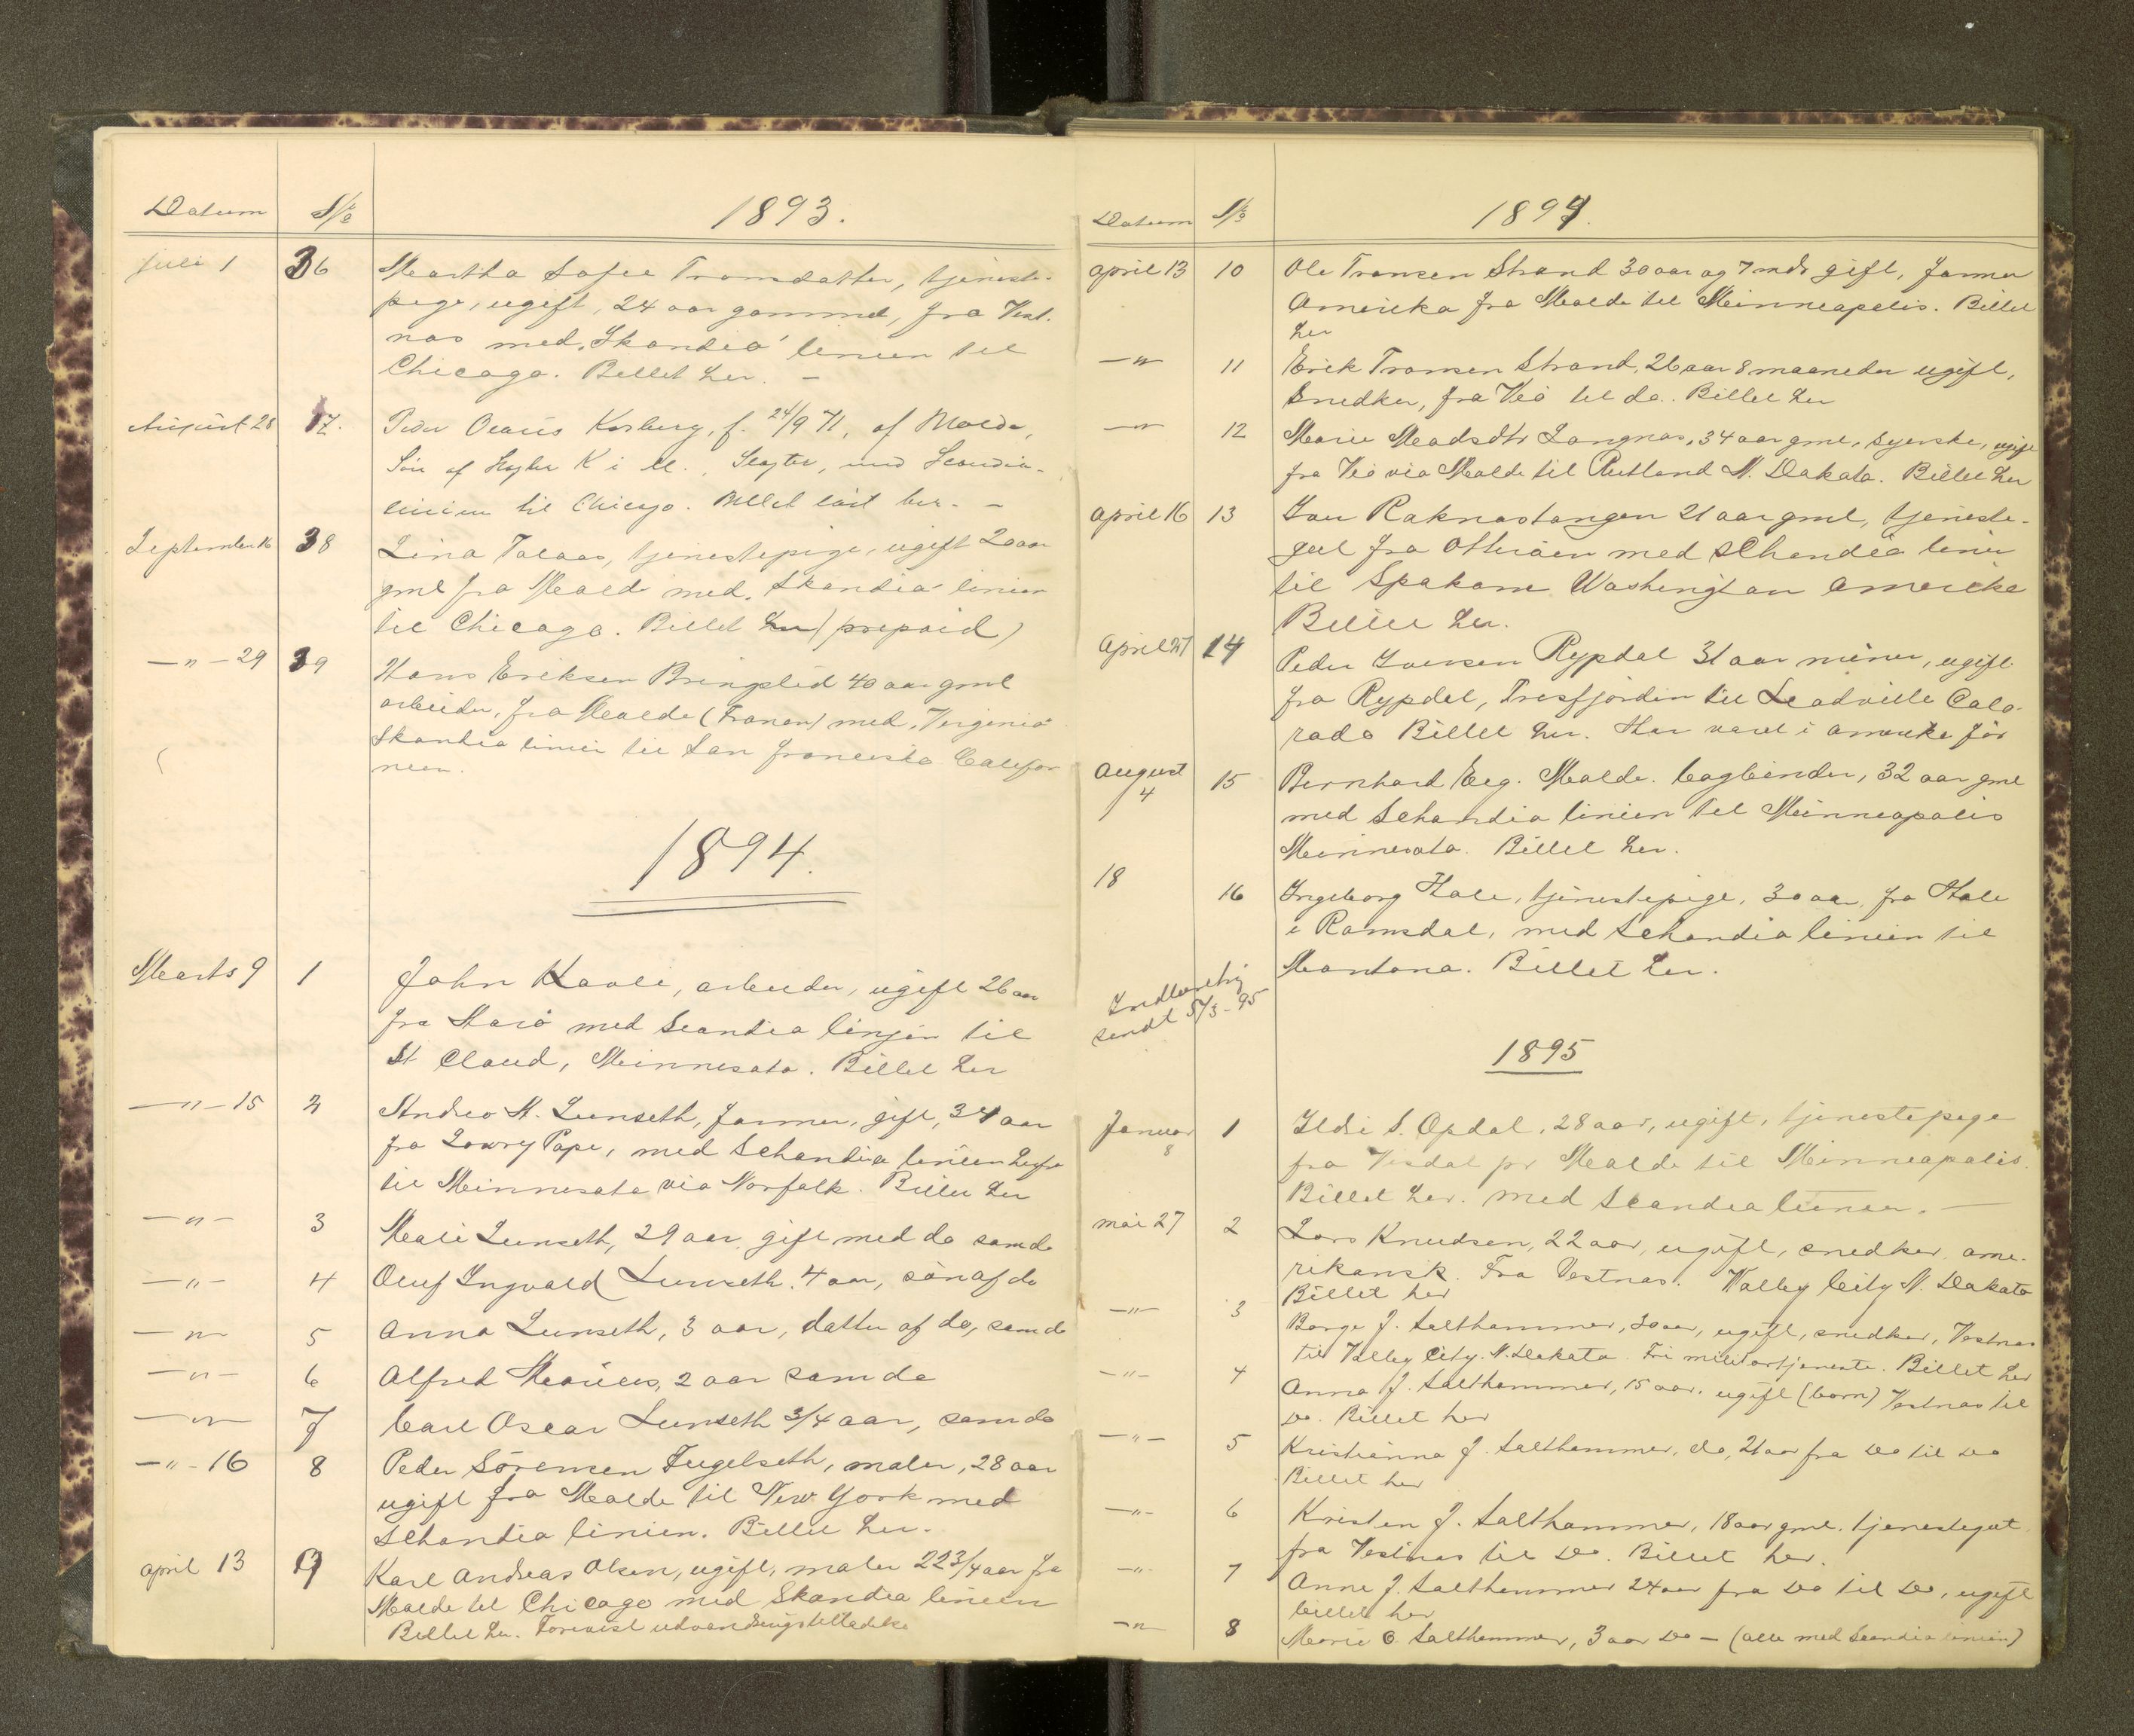 Datum No 1893.
Juli 1 36 Martha Sofie Tromsdatter, tjeneste-
pige, ugift, 24 aar gammel, fra Vest-
nas med "Skandia" linien til
Chicago. Billet her. —
August 28 37. Peder Olaus Korsberg, f. 24/9 71, af Molde,
Sön af Slagter K i M., Slagter, med Scandia-
linien til Chicago. Billet löst her. —
September 16 38 Lina Talaas, tjenestepige, ugift 20 aar
gml fra Molde med "Skandia" linien
til Chicago. Billet her (prepaid)
—"— 29 39 Hans Eriksen Bringslid 40 aar gml
arbeider, fra Molde (Franen) med "Virginia"
Skandia linien til San Francisko Califor
nien.
1894.
Marts 9 1 John Kavli, arbeider, ugift 26 aar
fra Harö med Scandia linjen til
St Cloud, Minnesota. Billet her
—"— 15 2 Andreo M. Lunseth, farmer, gift, 34 aar
fra Lowry Pope, med Schandia linien herfra
til Minnesota via Norfolk. Billet her
—"— 3 Mali Lunseth, 29 aar, gift med do som do
—"— 4 Oluf Ingvald Lunseth. 4 aar, sön af do
—"— 5 Anna Lunseth, 3 aar, datter af do, som do
—"— 6 Alfred Marius, 2 aar som do
—"— 7 Carl Oscar Lunseth 3/4 aar, som do
—"— 16 8 Peder Sörensen Fugelseth, maler, 28 aar
ugift fra Molde til New York med
Schandia linien. Billet her.
April 13 9 Karl Andreas Olsen, ugift, maler 22 3/4 aar fra
Molde til Chicago med Skandia linien
Billet her. Forevist udvandringstilladelse
Datum No 1894.
April 13 10 Ole Tronsen Strand 30 aar og 7 mdr gift, farmer
Amerika fra Molde til Minneapolis. Billet
her
—"— 11 Erik Tronsen Strand, 26 aar 8 maaneder ugift,
Snedker, fra Veö til do. Billet her
—"— 12 Marie Madsdtr Langnas, 34 aar gml, syerske, ugift
fra Veö via Molde til Rutland N. Dakota. Billet her
April 16 13 Iver Raknastangen 21 aar gml, tjeneste-
gut fra Otteröen med Schandia linien
til Spokane Washington Amerika
Billet her.
April 27 14 Peder Iversen Rypdal 31 aar miner, ugift
fra Rypdal, Tresfjorden til Leadville Colo-
rado Billet her. Har varet i Amerika för
August
4 15 Bernhard Eeg. Molde. bogbinder, 32 aar gml
med Schandia linien til Minneapolis
Minnesota. Billet her.
18 16 Ingeborg Hole, tjenestepige, 30 aar, fra Hole
i Romsdal, med Schandia linien til
Montana. Billet her.
sendt 5/3-95
1895
Januar
8 1 Ildri S. Opdal, 28 aar, ugift, tjenestepige
fra Visdal pr Molde til Minneapolis.
Billet her. med Scandia linien. —
Mai 27 2 Lars Knudsen, 22 aar, ugift, snedker, ame-
rikansk. Fra Vestnas. Valley City N. Dakota
Billet her
—"— 3 Borge J. Salthammer, 30 aar, ugift, snedker, Vestnas
til Valley City. N. Dakota. Fri militartjeneste. Billet her
—"— 4 Anna J. Salthammer, 15 aar, ugift (barn) Vestnas til
Do. Billet her
—"— 5 Kristianna J. Salthammer, do, 21 aar fra Do til Do
Billet her
—"— 6 Kristen J. Salthammer, 18 aar gml. tjenestegut
fra Vestnas til Do. Billet her.
—"— 7 Anne J. Salthammer 24 aar fra Do til Do, ugift
billet her
—"— 8 Marie O. Salthammer, 3 aar Do — (alle med Scandia linien)